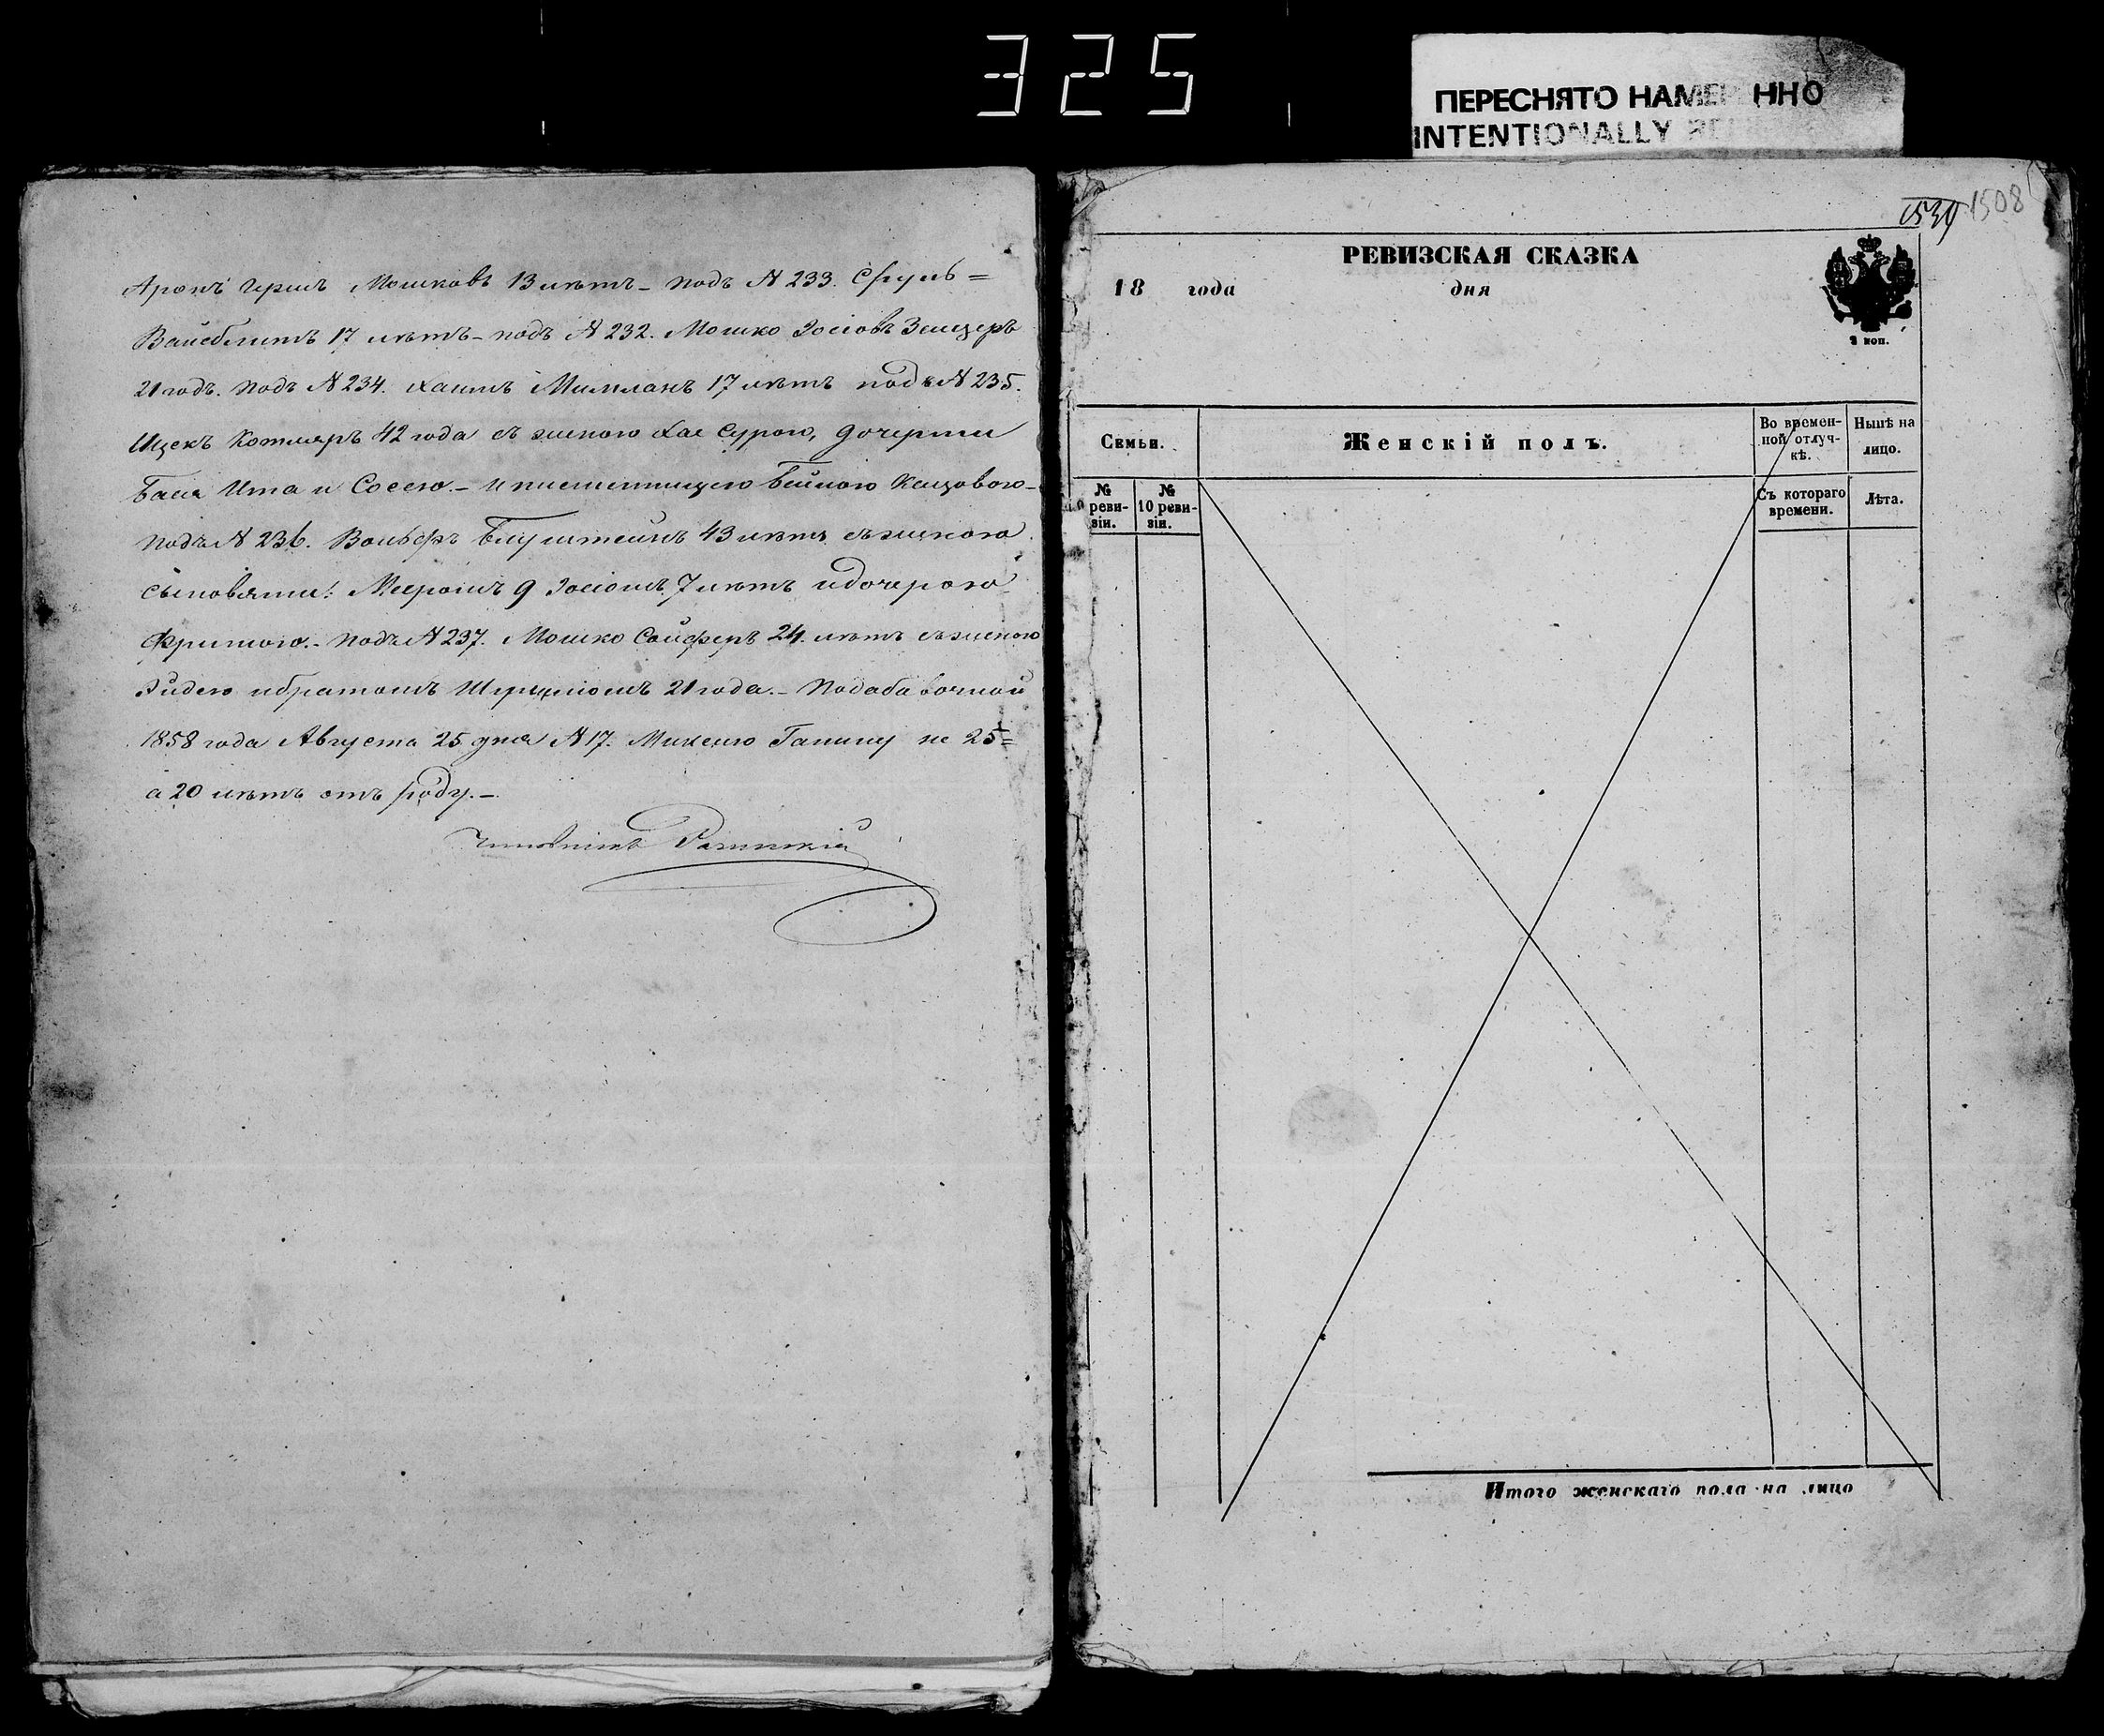 325
ПЕРЕСНЯТО НАМЕ ННО
INTENTIONALLY
Аронъ Мошковъ 13 лѣтъ – подъ № 233. Сруль=
Вайсблитъ 17 лѣтъ – подъ № 232. Мошко Іосіовъ Зельцеръ
21 годъ. подъ № 234. Хаимъ 17 лѣтъ подъ № 235.
Ицекъ Котляръ 42 года съ женою Хае Сурою, дочерьми
Бася Ита и Сосею. – и Бейлою
подъ № 236. Вольфъ Блуштейнъ 43 лѣтъ съ женою
сыновями: Мееромъ 9 Іосіомъ 7 лѣтъ и дочерою
Фримою. – подъ № 237. Мошко 24 лѣтъ съ женою
Эйдею и братомъ 21 года. – По добавочной
1858 года Августа 25 дня № 17. Ганину не 25=
а 20 лѣтъ отъ роду. –
1539 1508
РЕВИЗСКАЯ СКАЗКА
18 года дня
2 коп.
Семьи.
Женскій полъ.
Во времен-
ной отлуч-
кѣ.
Нынѣ на
лицо.
№
реви-
зіи.
№
10 реви-
зіи.
Съ котораго
времени.
Лѣта.
Итого женскаго пола на лицо